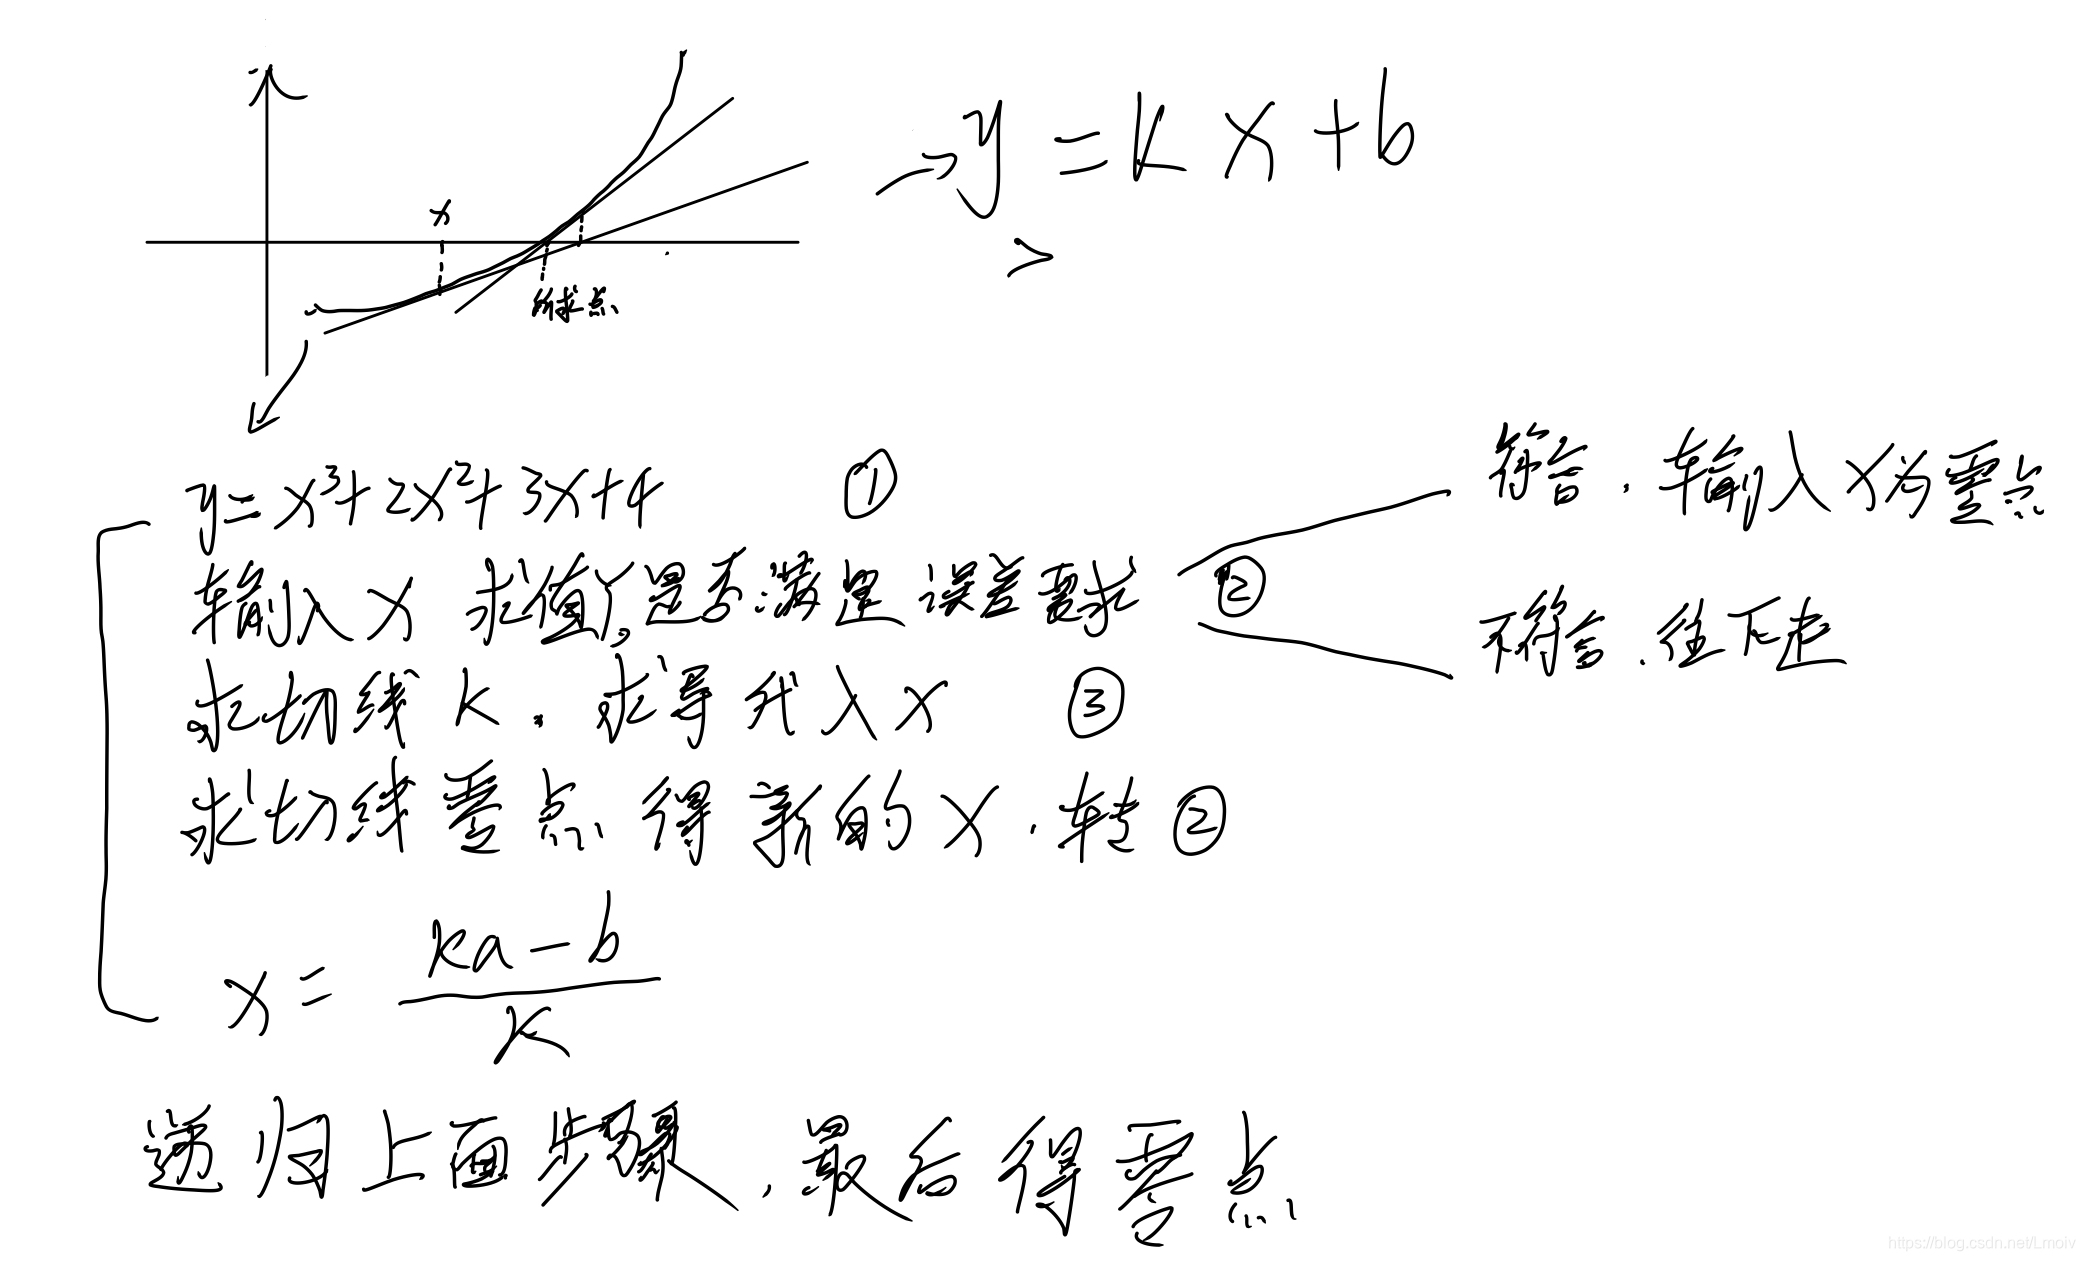 y=kx+b
x
所求点
y=x³+2x²+3x+4 ①
输入x 求值y,是否满足误差要求 ②
符合.输入x为零点
不符合.往下走
求切线k.求导代入x ③
求切线零点得新的x.转②
x=(ka-b)/k
递归上面步骤,最后得零点
https://blog.csdn.net/Lmoiv